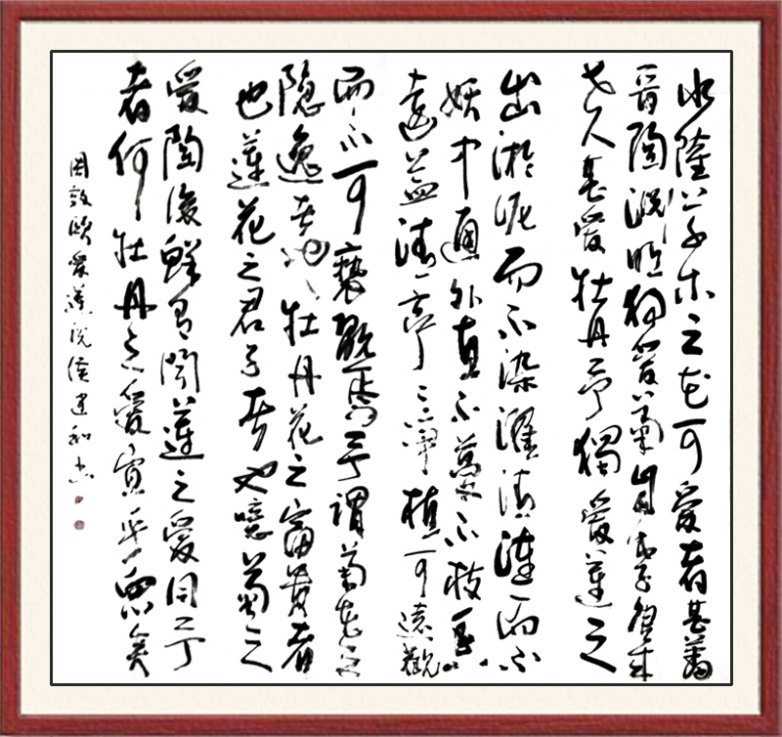 水陸草木之花可愛者甚蕃
晉陶淵明獨愛菊自李唐來
世人甚愛牡丹予獨愛蓮之
出淤泥而不染濯清漣而不
妖中通外直不蔓不枝香
遠益清亭亭淨植可遠觀
而不可褻翫焉予謂菊花之
隱逸者也牡丹花之富貴者
也蓮花之君子者也噫菊之
愛陶後鮮有聞蓮之愛同予
者何人牡丹之愛宜乎眾矣
周敦頤愛蓮說侯建和書